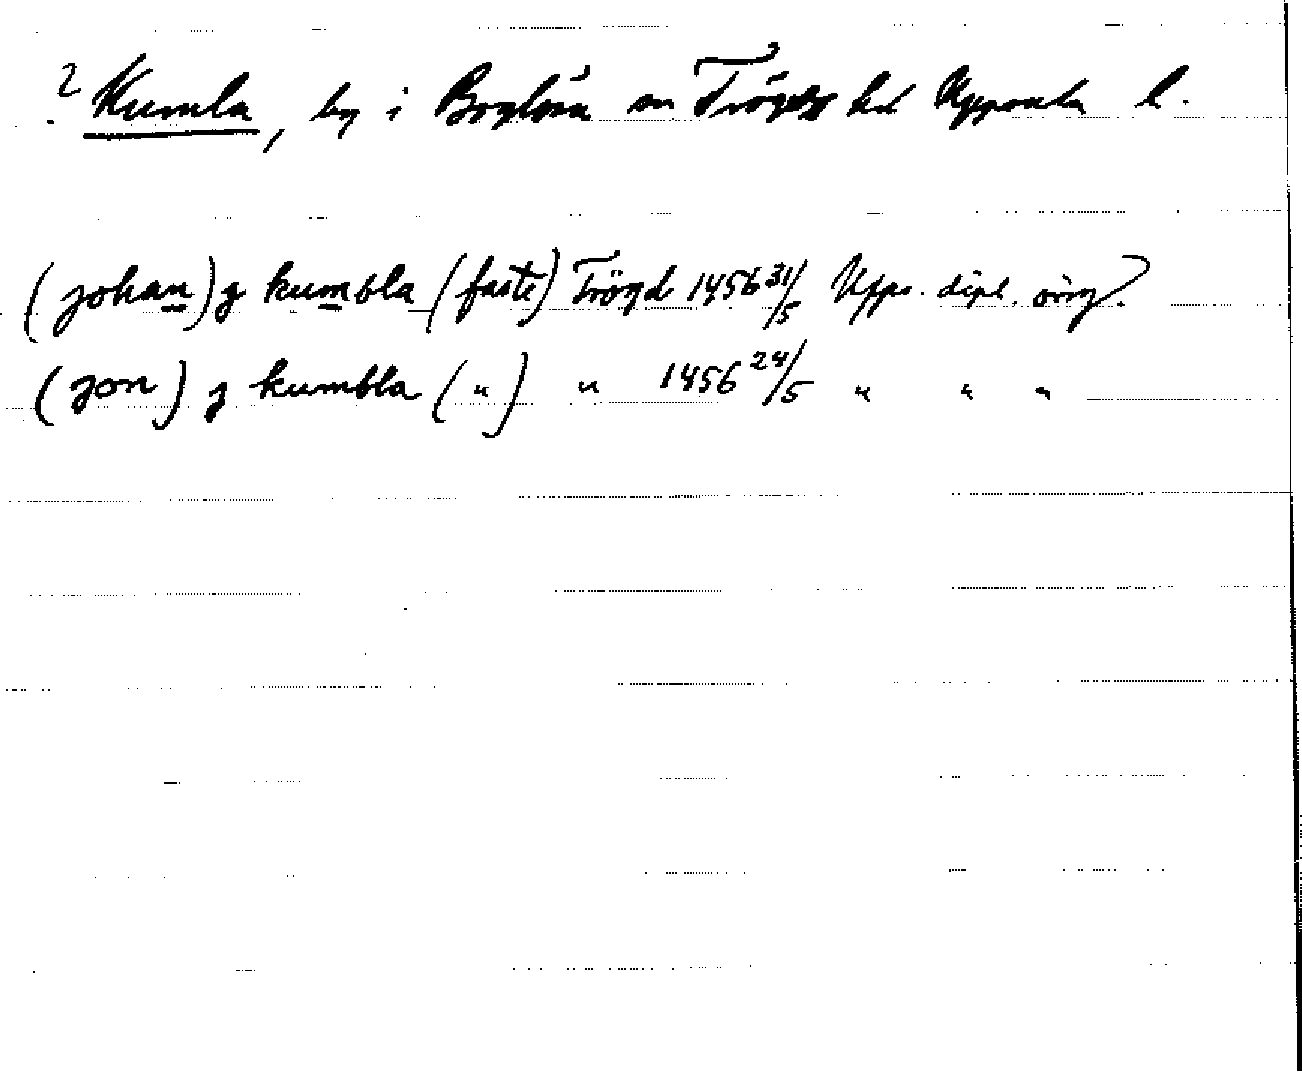 ? Kumla, by i Boglösa sn Trögds hd Uppsala l.
(johan) g kumbla (faste) Trögd 1456 31/5 Upps. dipl. orig?
(jon) g kumbla (") " 1456 24/5 " " "